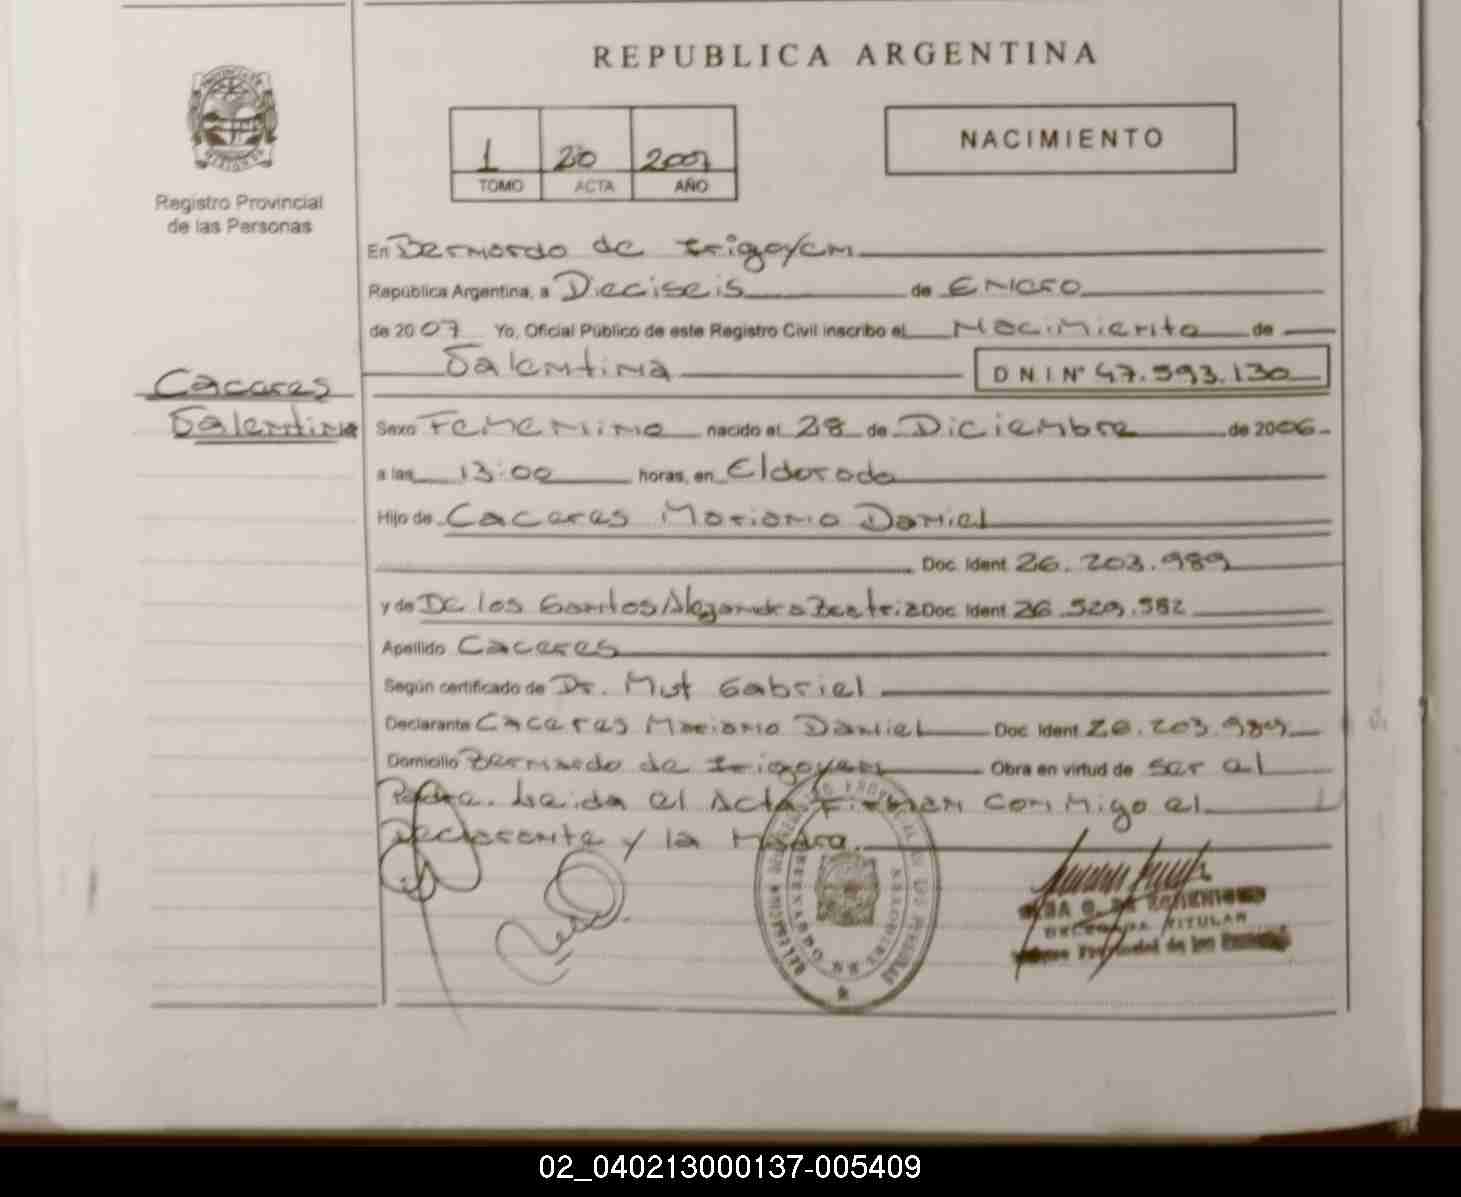 REPUBLICA ARGENTINA
1 20 2007
TOMO ACTA AÑO
NACIMIENTO
Registro Provincial
de las Personas
En Bernardo de Irigoyen
República Argentina, a Dieciseis de Enero
de 2007 Yo, Oficial Público de este Registro Civil inscribo el Nacimiento de
Valentina DNI Nº 47.593.130
Caceres
Valentina
Sexo Femenino nacido el 28 de Diciembre de 2006
a las 13:00 horas, en Eldorado
Hijo de Caceres Mariano Daniel
Doc. Ident. 26.203.989
y de De los Santos Alejandra Beatriz Doc. Ident. 26.529.582
Apellido Caceres
Según certificado de Dr. Mut Gabriel
Declarante Caceres Mariano Daniel Doc. Ident. 26.203.989
Domicilio Bernardo de Irigoyen Obra en virtud de ser el
Padre. Leida el Acta Firman conmigo el
Declarante y la Madre.
TITULAR
Provincial de las
02_040213000137-005409